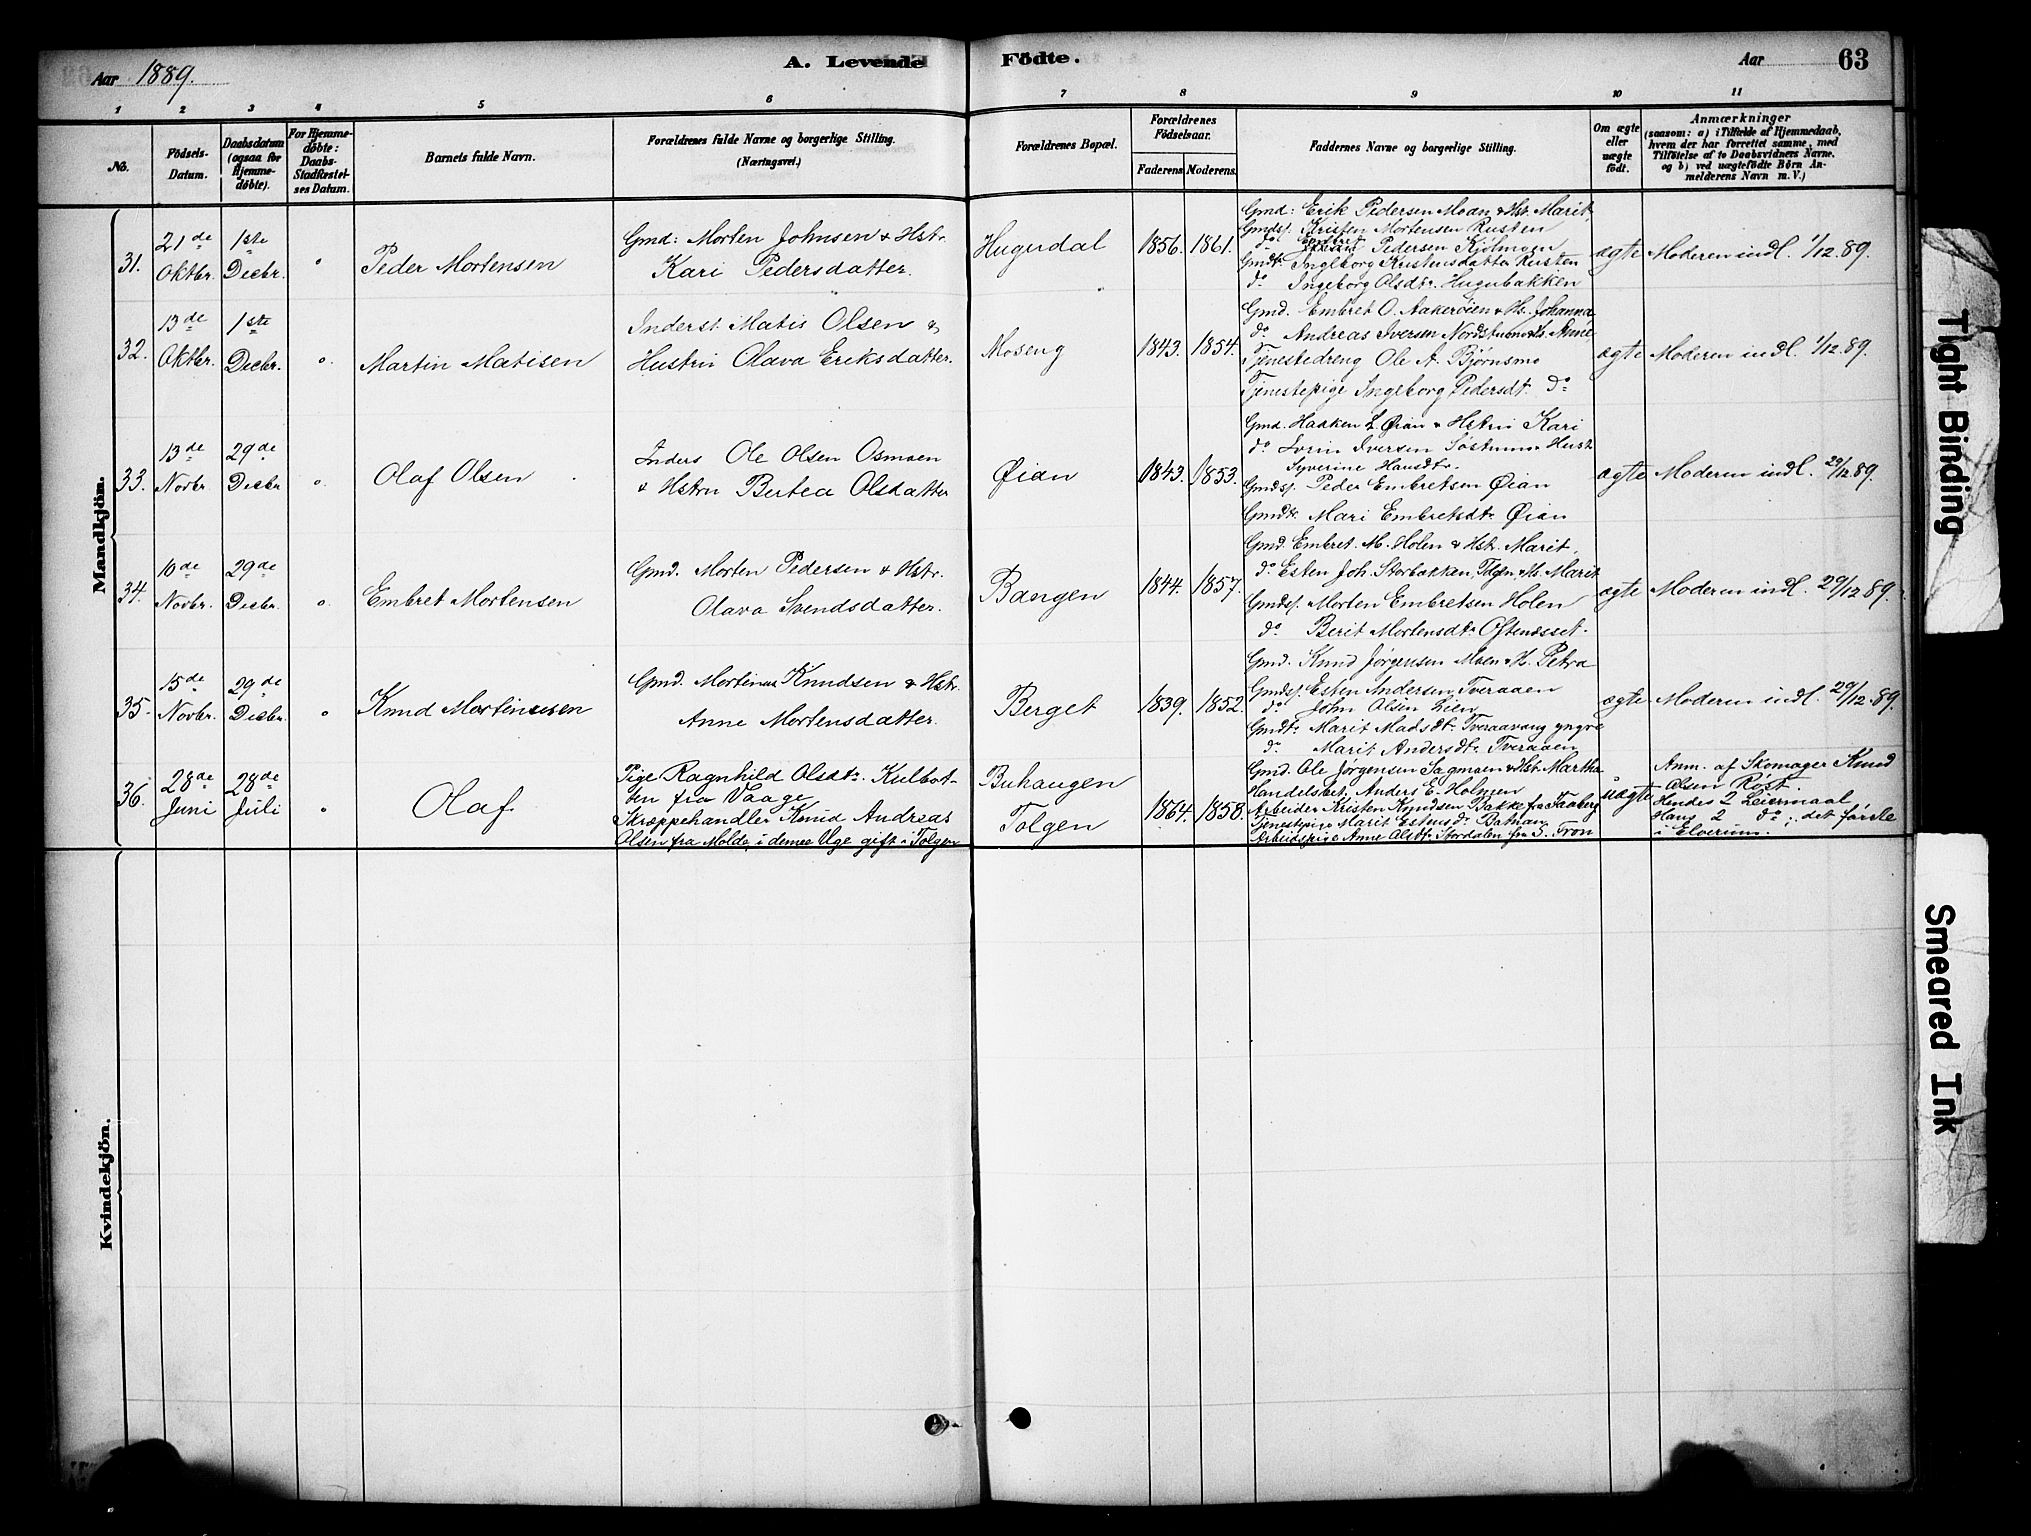 Aar 1889.
A. Levende Födte.
Aar
63
1 2 3 4 5 6 7 8 9 10 11
No.
Födsels-Datum.
Daabsdatum (ogsaa for Hjemmedöbte).
For Hjemmedöbte: Daabs-Stadfæstelses Datum.
Barnets fulde Navn.
Forældrenes fulde Navne og borgerlige Stilling. (Næringsvei.)
Forældrenes Bopæl.
Forældrenes Födselsaar.
Faderens Moderens.
Faddernes Navne og borgerlige Stilling.
Om ægte eller uægte födt.
Anmærkninger
(saasom: a) i Tilfælde af Hjemmedaab,
hvem der har forrettet samme, med
Tilföielse af to Daabsvidners Navne,
og b) ved uægtefödte Börn Anmelderens Navn m. V.)
Mandkjön.
31.
21de Oktbr.
1ste Decbr.
"
Peder Mortensen
Gmd: Morten Johnsen & Hstr.
Kari Pedersdatter.
Hugerdal
1856. 1861.
Gmd: Erik Pedersen Moan & Hst. Marit
Gmdsj. Kristen Mortensen Rusten
do Embret Pedersen Kjølmoen
Gmdt. Ingeborg Kristensdatter Rusten
do Ingeborg Olsdtr. Hugubakken
ægte
Moderen indl. 1/12.89.
32.
13de Oktbr.
1ste Decbr.
"
Martin Matisen
Inderst Matis Olsen &
Hustru Olava Eriksdatter.
Moseng
1843. 1854.
Gmd. Embret O. Aakerøien & Hs. Johanna
do Andreas Iversen Nordstumo & Hs. Anne
Tjenestedreng Ole A. Bjørnsmo
Tjenestepige Ingeborg Pedersdt. do
ægte
Moderen indl. 1/12.89.
33.
13de Novbr.
29de Decbr
"
Olaf Olsen
Inders Ole Olsen Osmoen
& Hstru Bertea Olsdatter
Øian
1843. 1853.
Gmd. Haaken L. Øian & Hstru Kari
do Iversen & Hust
Syverine Hansdtr.
Gmdsj. Peder Embretsen Øian
Gmdtr. Mari Embretsdtr. Øian
ægte
Moderen indl. 29/12.89.
34.
10de Novbr.
29de Decbr.
"
Embret Mortensen
Gmd. Morten Pedersen & Hstr.
Olava Svendsdatter.
Bangen
1844. 1857.
Gmd. Embret. M. Holen & Hstr. Marit.
do Esten Joh. Storbakken, Tolgen & Hs. Marit
Gmdsj. Morten Embretsen Holen
do Berit Mortensdtr. Oftenæsset.
ægte
Moderen indl. 29/12 89.
35.
15de Novbr.
29de Decbr.
"
Knud Martinusen
Gmd. Mortinus Knudsen & Hstr.
Anne Mortensdatter.
Berget
1839. 1852.
Gmd. Knud Jørgensen Moen & H. Petra
Gmdsj. Esten Andersen Tveraaen
do John Olsen Lien
Gmdtr. Marit Madsdtr. Tveraavang yngre
do Marit Andersdtr. Tveraaen
ægte
Moderen indl. 29/12.89.
36.
28de Juni
28de Juli
"
Olaf
Pige Ragnhild Olsdtr. Kulbotten fra Vaage
Skræppehandler Knud Andreas
Olsen fra Molde, i denne Uge gift i Tolgen
Buhaugen
Tolgen
1864. 1858.
Gmd. Ole Jørgensen Sagmoen & Hst. Martha
Handelsbet. Anders E. Holmen
Arbeider Kristen Knudsen Bakke fra Faaberg
Tjenestepige Marit Estensdtr. Batnan
Arbeidspige Anne Olsdtr. Stordalen fra S. Tron
uægte
Anm. af Skomager Knud
Olsen Røst.
Hendes 2 Leiermaal
Hans 2 do; det første
i Elverum.
Kvindekjön.
Tight Binding
Smeared Ink